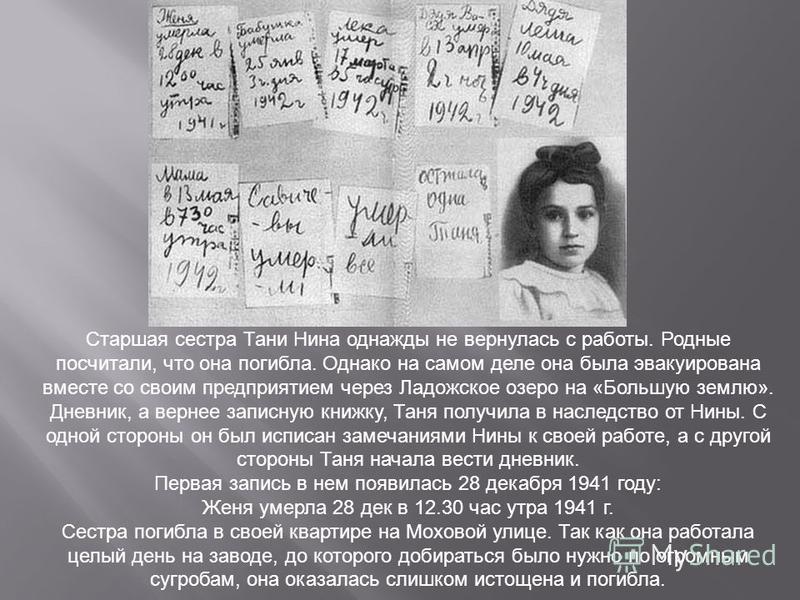 Женя
умерла
28 дек в
12 00 час
утра
1941 г
Бабушка
умерла
25 янв
3 ч. дня
1942 г
Лека
умер
17 марта
в 5 час утр
1942 г
Дядя Ва-
ся умер
в 13 апр
2 ч ноч
1942 г
Дядя
Леша
10 мая
в 4 ч дня
1942
Мама
в 13 мая
в 7 30
час
утра
1942 г
Савиче-
-вы
умер-
-ли
умер
-ли
все
осталась
одна
Таня
Старшая сестра Тани Нина однажды не вернулась с работы. Родные
посчитали, что она погибла. Однако на самом деле она была эвакуирована
вместе со своим предприятием через Ладожское озеро на «Большую землю».
Дневник, а вернее записную книжку, Таня получила в наследство от Нины. С
одной стороны он был исписан замечаниями Нины к своей работе, а с другой
стороны Таня начала вести дневник.
Первая запись в нем появилась 28 декабря 1941 году:
Женя умерла 28 дек в 12.30 час утра 1941 г.
Сестра погибла в своей квартире на Моховой улице. Так как она работала
целый день на заводе, до которого добираться было нужно по огромным
сугробам, она оказалась слишком истощена и погибла.
MyShared